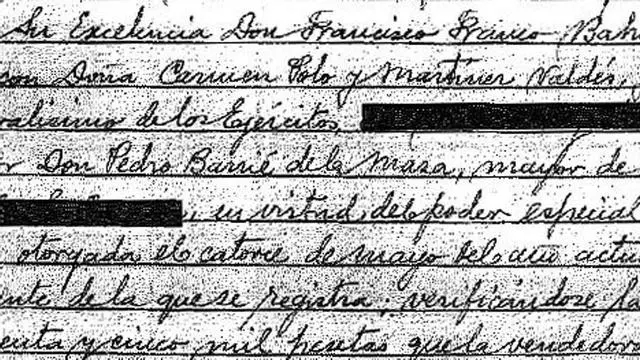 Su Excelencia Don Francisco Franco Bah
con Doña Carmen Polo y Martínez Valdés,
ralísimo de los Ejércitos,
or Don Pedro Barrié de la Maza, mayor de
, en virtud del poder especial
otorgada el catorce de mayo del año actu
ente de la que se registra; verificándose la
enta y cinco mil pesetas que la vendedor